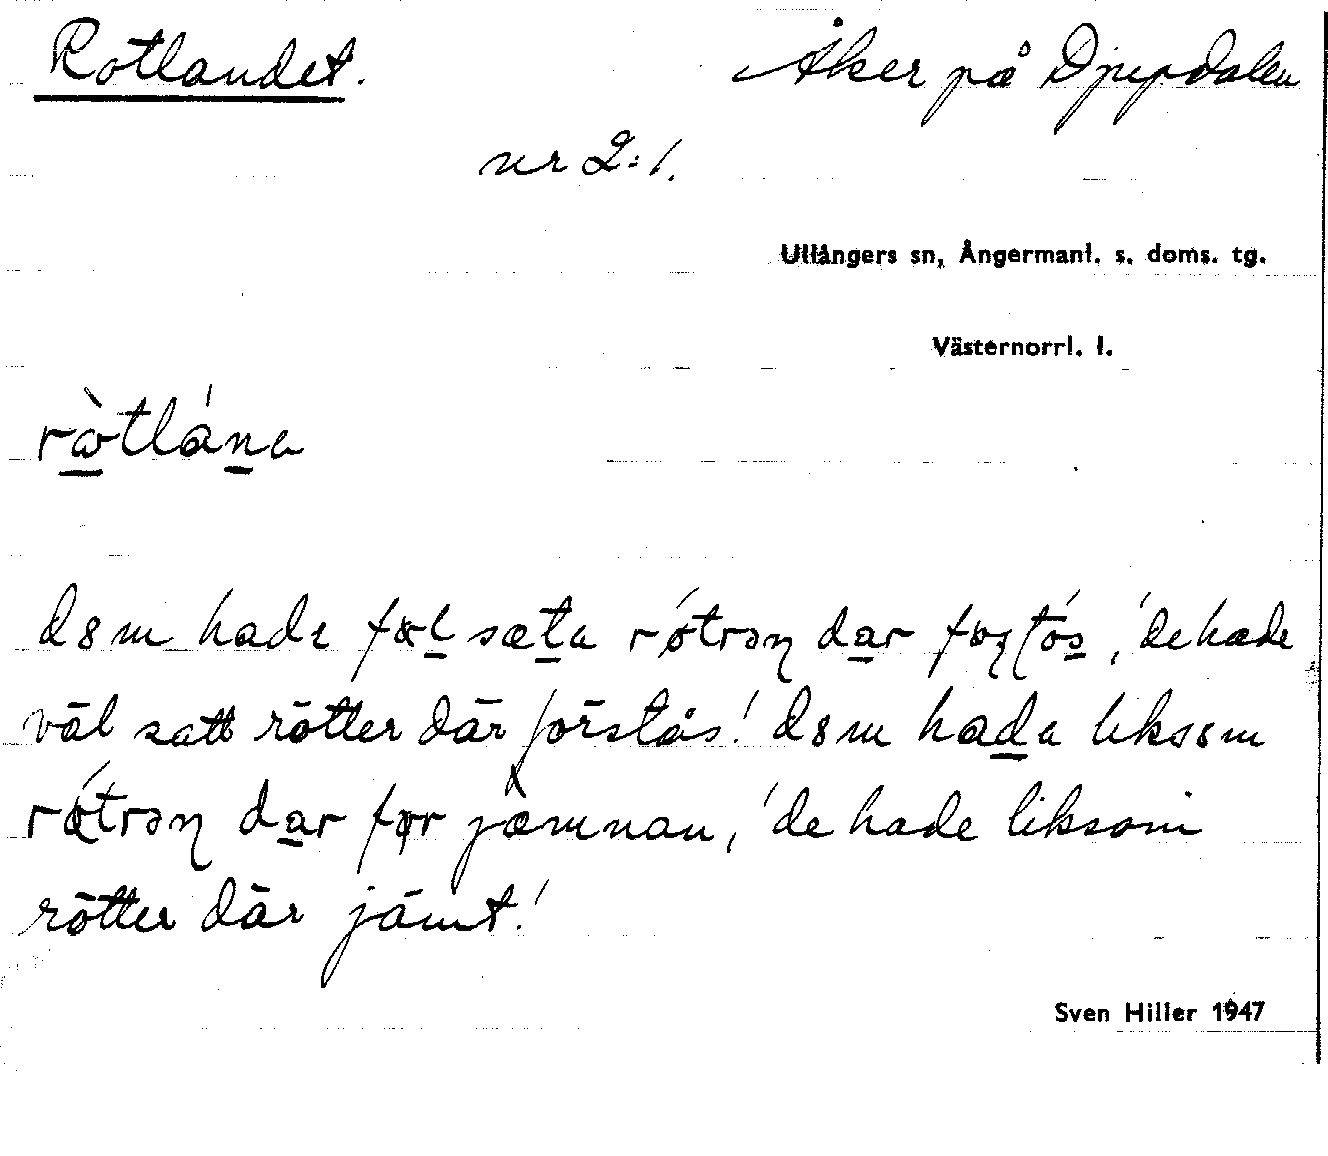 Rotlandet. Åker på Djupdalen
nr 2:1.
Ullångers sn, Ångermanl. s. doms. tg.
Västernorrl. l.
ròtlána
dɞm hade fœl sæta rótrəŋ dar fɞʂtós, 'de hade
väl satt rötter där förstås! dɞm hada liksɞm
rǿtrəŋ dar før jæ̀mnan, 'de hade liksom
rötter där jämt!'
Sven Hiller 1947